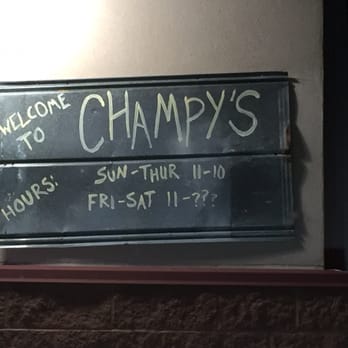 WELCOME
TO
CHAMPY'S
HOURS:
SUN-THUR 11-10
FRI-SAT 11-???